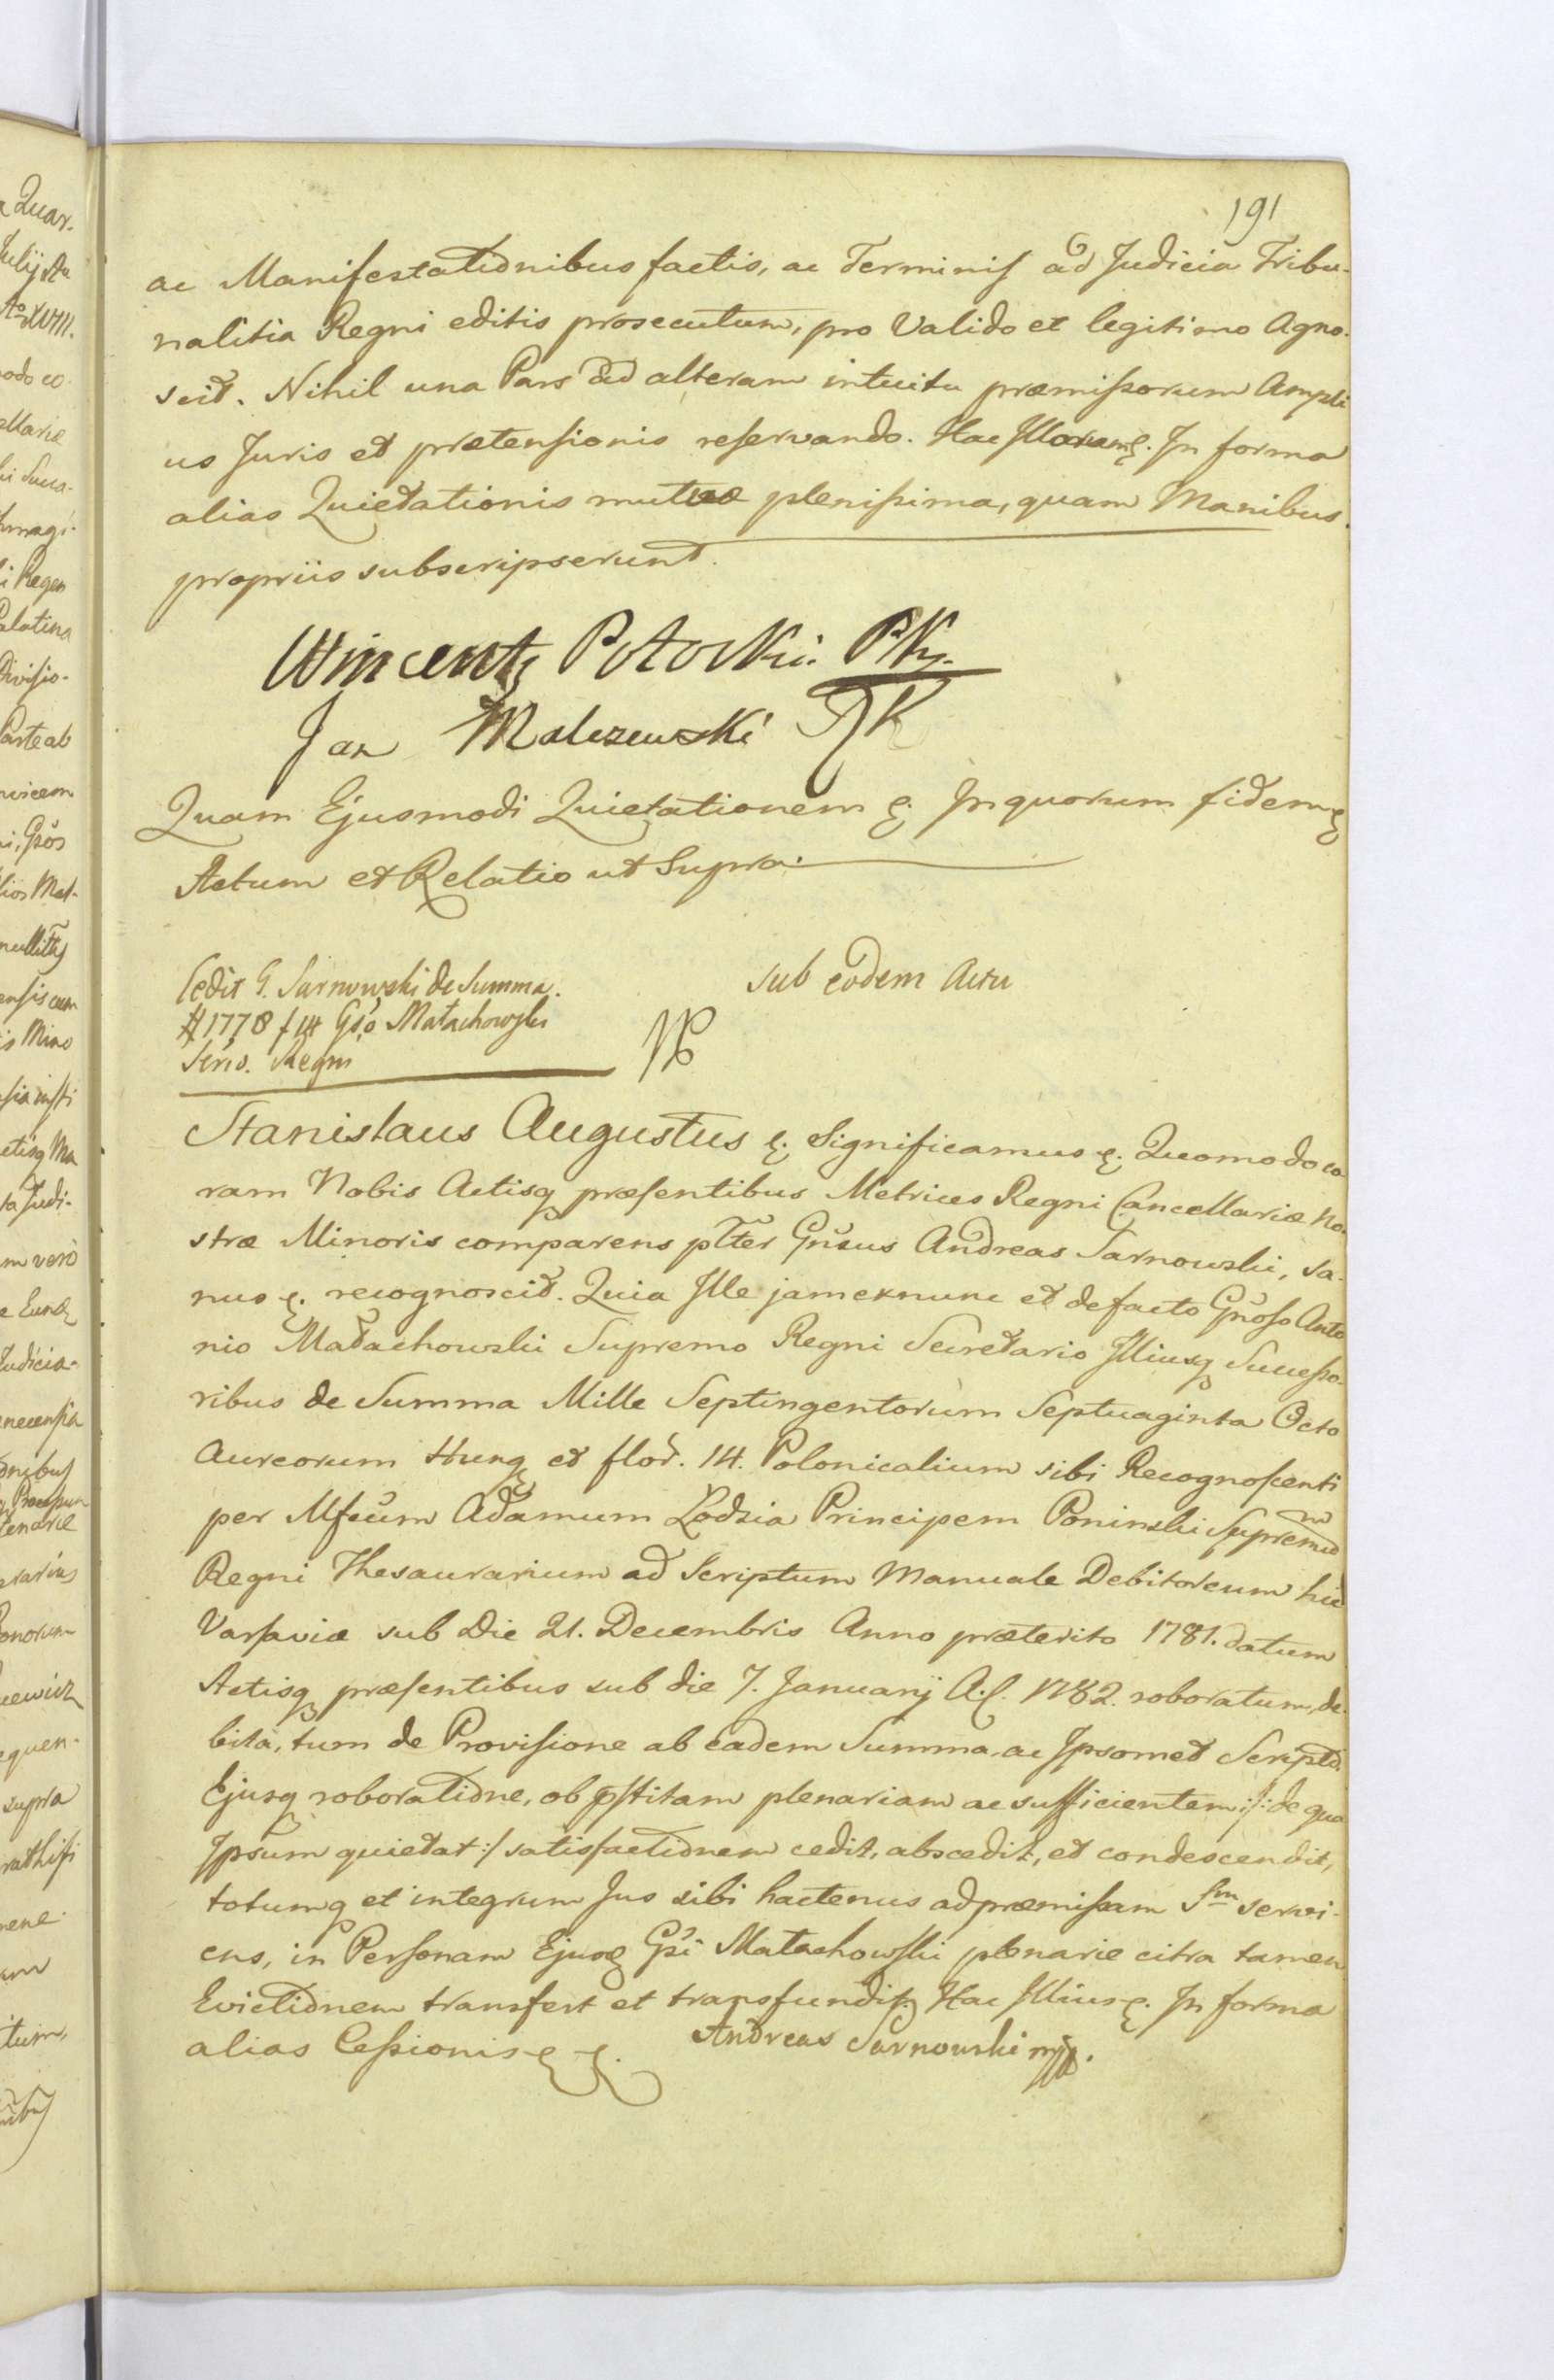 191
ac Manifestationibus factis, ac Terminis ad Judicia Tribu-
nalitia Regni editis prosecutum, pro Valido et legitimo Agno-
scit. Nihil una Pars ad alteram intuitu præmissorum Ampli
us Juris et prætensionis reservando. Hac Illorum &. In forma
alias Quietationis mutuæ plenissima, quam Manibus
propriis subscripserunt.
Wincenty Potocki. PKy.
Jan Maleszewski
Quam Ejusmodi Quietationem &. In quorum fidem &
Actum et Relatio ut Supra.
Cedit G. Sarnowski de Summa.
#1778 f 14 Gso Małachowski
Srio. Regni
sub eodem Actu
Stanislaus Augustus &. Significamus &. Quomodo co-
ram Nobis Actisq præsentibus Metrices Regni Cancellariæ No-
stræ Minoris comparens plter Gnsus Andreas Sarnowski, sa-
nus &. recognoscit. Quia Ille jam exnunc et de facto Gnoso Anto
nio Małachowski Supremo Regni Secretario Illiusq Successo-
ribus de Summa Mille Septingentorum Septuaginta Octo
Aureorum Hung et flor. 14. Polonicalium sibi Recognoscenti
per Mfcum Adamum Lodzia Principem Poninski Supremum
Regni Thesaurarium ad Scriptum Manuale Debitoreum hic
Varsaviæ sub Die 21. Decembris Anno præterito 1781. datum
Actisq præsentibus sub die 7. Januarij A. C. 1782. roboratum, de-
bita, tum de Provisione ab eadem Summa, ac Ipsomet Scripto
Ejusq roboratione, ob pstitam plenariam ac sufficientem :/: de qua
Ipsum quietat :/ satisfactionem cedit, abscedit, et condescendit,
totumq et integrum Jus sibi hactenus ad præmissam Sm servi-
ens, in Personam Ejusd Gsi Małachowski plenarie citra tamen
Evictionem transfert et transfundit. Hac Illius &. In forma
alias Cessionis & &.
Andreas Sarnowski mpp.